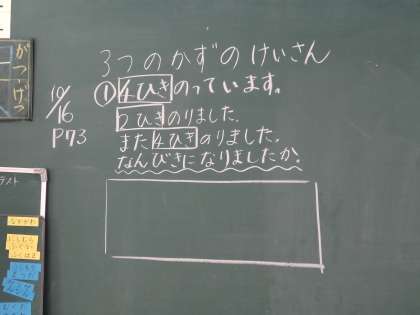 3つのかずのけいさん
10/16
P73
①4ひきのっています。
2ひきのりました。
また4ひきのりました。
なんびきになりましたか。
がつ